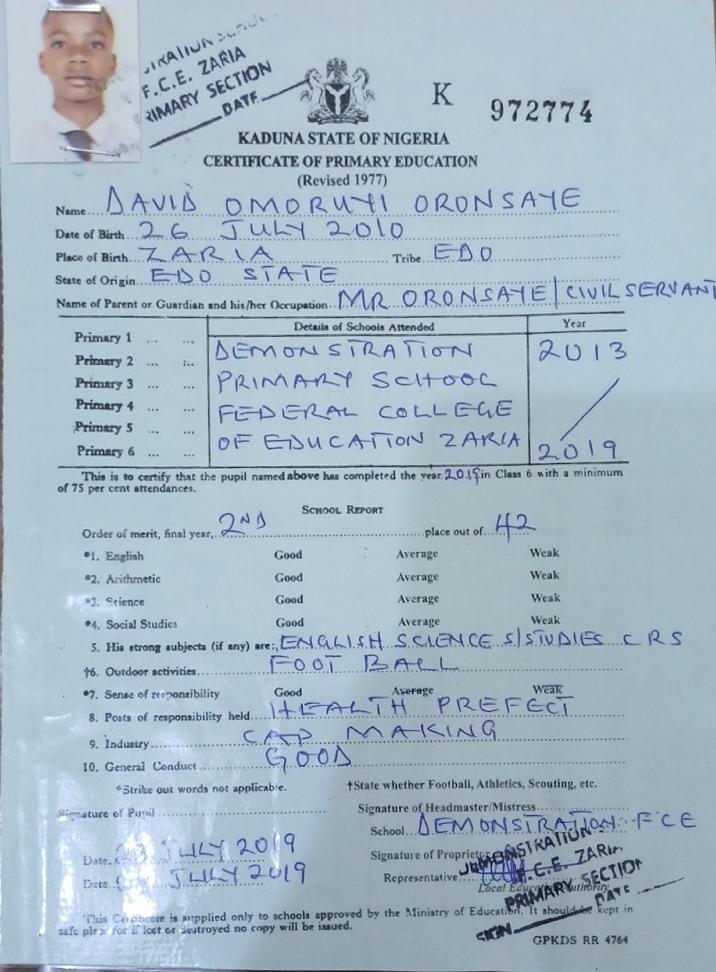 F.C.E. ZARIA
PRIMARY SECTION
DATE
K 972774
KADUNA STATE OF NIGERIA
CERTIFICATE OF PRIMARY EDUCATION
(Revised 1977)
Name DAVID OMORUYI ORONSAYE
Date of Birth 26 JULY 2010
Place of Birth ZARIA Tribe EDO
State of Origin EDO STATE
Name of Parent or Guardian and his/her Occupation MR ORONSAYE / CIVIL SERVANT
Details of Schools Attended Year
Primary 1 ... ...
Primary 2 ... ... DEMONSTRATION 2013
Primary 3 ... ... PRIMARY SCHOOL
Primary 4 ... ... FEDERAL COLLEGE
Primary 5 ... ... OF EDUCATION ZARIA
Primary 6 ... ... 2019
This is to certify that the pupil named above has completed the year 2019 in Class 6 with a minimum
of 75 per cent attendances.
SCHOOL REPORT
Order of merit, final year, 2ND place out of 42
*1. English Good Average Weak
*2. Arithmetic Good Average Weak
*3. Science Good Average Weak
*4. Social Studies Good Average Weak
5. His strong subjects (if any) are: ENGLISH SCIENCE S/STUDIES CRS
†6. Outdoor activities FOOT BALL
*7. Sense of responsibility Good Average Weak
8. Posts of responsibility held HEALTH PREFECT
9. Industry CAP MAKING
10. General Conduct GOOD
*Strike out words not applicable. †State whether Football, Athletics, Scouting, etc.
Signature of Pupil Signature of Headmaster/Mistress
School DEMONSTRATION FCE
Date JULY 2019 Signature of Proprietor
Date JULY 2019 Representative
Local Education Authority
DEMONSTRATION
F.C.E. ZARIA
PRIMARY SECTION
SIGN DATE
*This Certificate is supplied only to schools approved by the Ministry of Education. It should be kept in
safe place for if lost or destroyed no copy will be issued.
GPKDS RR 4764